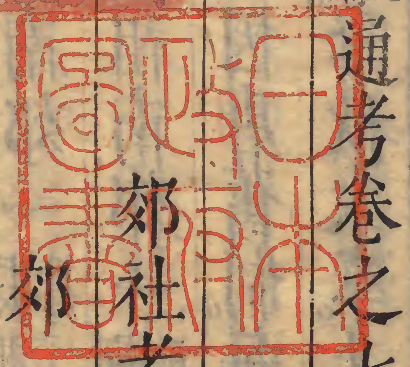 通考卷之
郊社考
郊
日本
政府
圖書